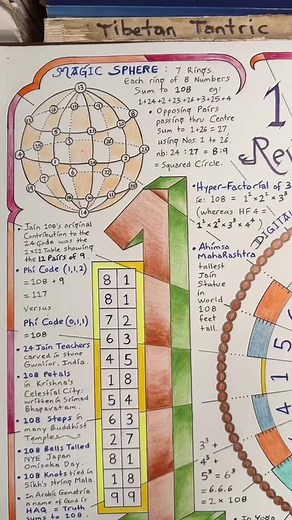 Tibetan Tantric
MAGIC SPHERE : 7 Rings.
Each ring of 8 Numbers
Sum to 108 eg:
1+24+2+23+26+3+25+4
• Opposing Pairs
passing thru Centre
Sum to 1+26 = 27,
using Nos. 1 to 26.
nb: 24 : 27 = 8:9
= Squared Circle.
• Jain 108's original
Contribution to the
24 Code was the
1x12 Table showing
the 12 Pairs of 9.
• Phi Code (1,1,2)
= 108 + 9
= 117
Versus
Phi Code (0,1,1)
= 108
• 24 Jain Teachers
carved in stone
Gwalior, India.
• 108 Petals
in Krishna's
Celestial City:
written in Srimad
Bhagavatam.
• 108 Steps in
many Buddhist
Temples
• 108 Bells Tolled
NYE Japan
Omisoka Day.
• 108 Knots tied in
Sikh's string Mala.
• In Arabic Gematria
a name of God is
HAQ = Truth
sums to 108.
8 1
8 1
7 2
6 3
4 5
1 8
5 4
6 3
2 7
8 1
1 8
9 9
1
Re
• Hyper-Factorial of 3
ie: 108 = 1¹ x 2² x 3³
(whereas HF4 =
1¹ x 2² x 3³ x 4⁴)
DIGITAL
• Ahimsa
Maharashtra
tallest
Jain
Statue
in
World
108
feet
tall.
1
5
6
3³ +
4³ +
5³ = 6³
= 6.6.6
= 2 x 108
• In Yoga